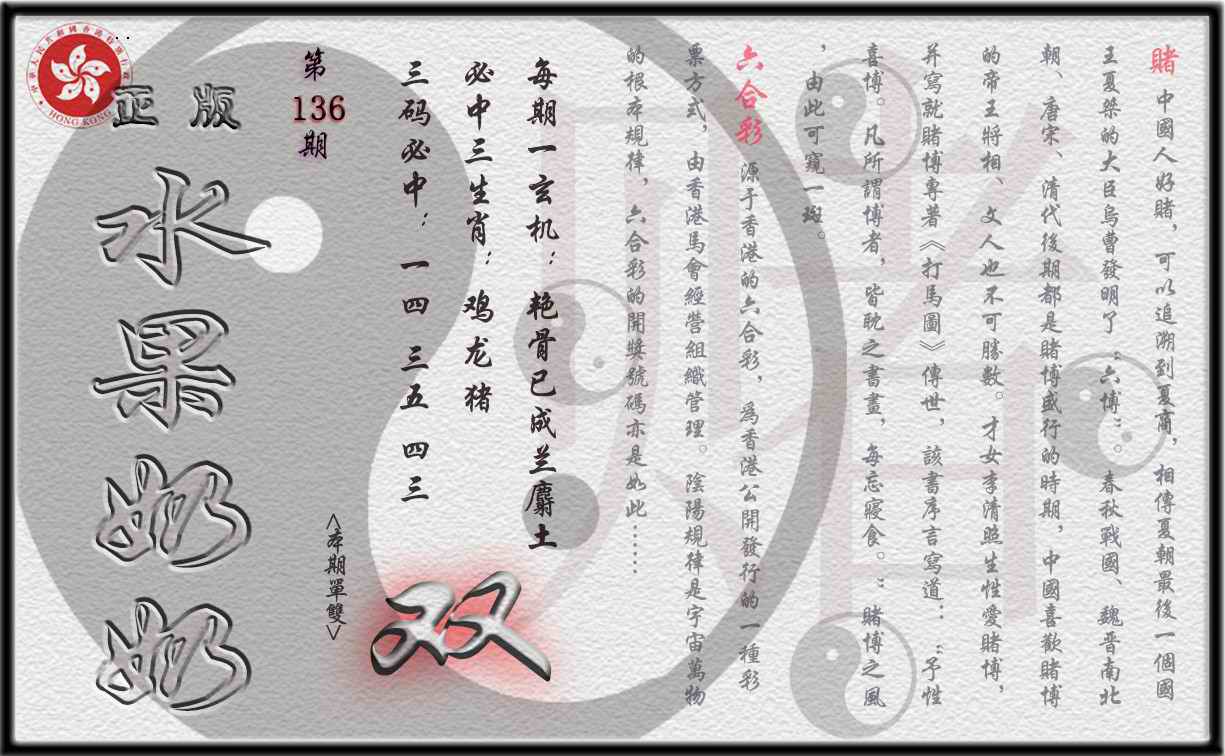 賭 中國人好賭，可以追溯到夏商，相傳夏朝最後一個國
王夏桀的大臣烏曹發明了“六博”。春秋戰國、魏晋南北
朝、唐宋、清代後期都是賭博盛行的時期，中國喜歡賭博
的帝王將相、文人也不可勝數。才女李清照生性愛賭博，
并寫就賭博專著《打馬圖》傳世，該書序言寫道：“予性
喜博。凡所謂博者，皆耽之書畫，每忘寢食。”賭博之風
，由此可窺一斑。
六合彩 源于香港的六合彩，爲香港公開發行的一種彩
票方式，由香港馬會經營組織管理。陰陽規律是宇宙萬物
的根本規律，六合彩的開獎號碼亦是如此……
每期一玄机：艳骨已成兰麝土
必中三生肖：鸡龙猪
三码必中：一四 三五 四三
第
136
期
<本期單雙>
双
正版
水果奶奶
中華人民共和國香港特別行政區
HONG KONG